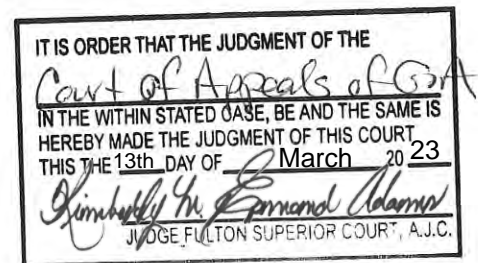 IT IS ORDER THAT THE JUDGMENT OF THE
Court of Appeals of GA
IN THE WITHIN STATED CASE, BE AND THE SAME IS
HEREBY MADE THE JUDGMENT OF THIS COURT
THIS THE 13th DAY OF March 20 23
Kimberly M. Esmond Adams
JUDGE FULTON SUPERIOR COURT, A.J.C.